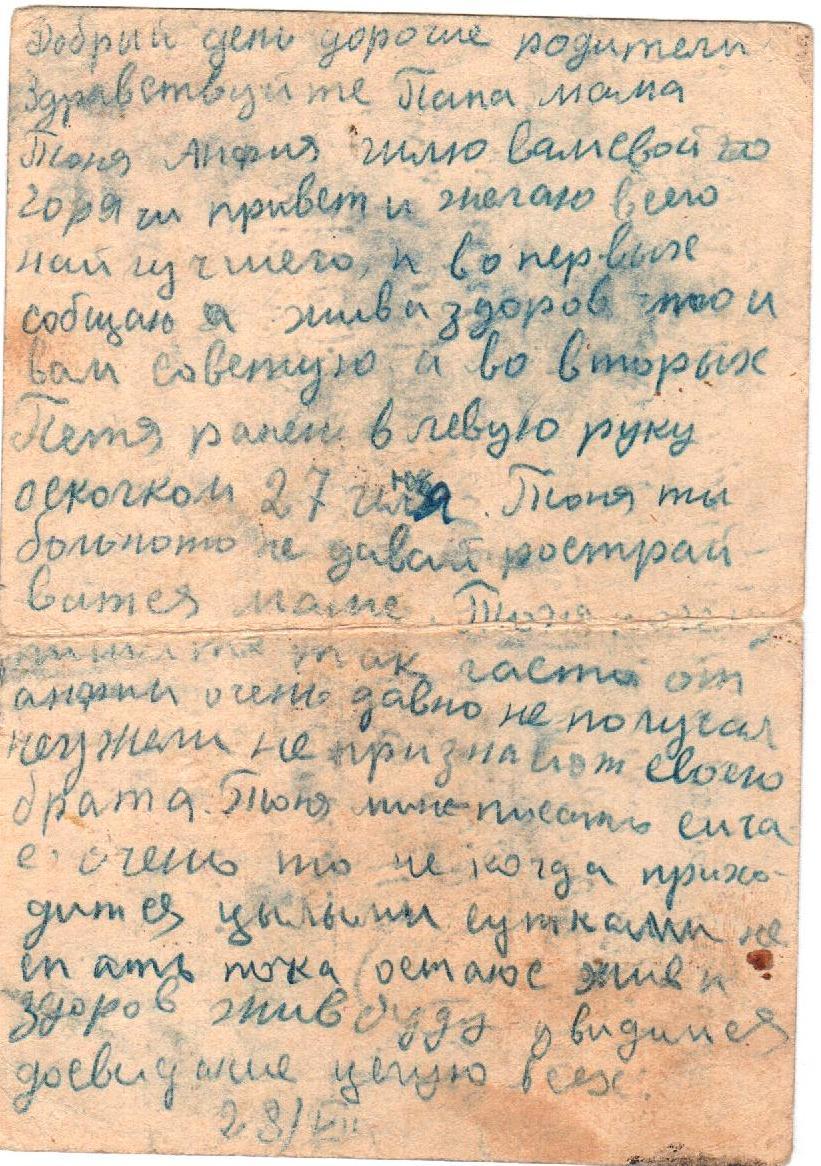 Добрый день дорогие родители
Здравствуйте Папа мама
Тоня Анфия шлю вам свой
горячи привет и желаю всего
найлучшего, и во первых
собщаю я жив а здоров того и
вам советую а во вторых
Петя ранен в левую руку
осколком 27 июля. Тоня ты
больното не давай рострай-
ватся маме. Тоня
пишите так часто от
анфии очень давно не получал
неужели не признают своего
брата. Тоня мне писать сича-
с очень то не когда прихо-
дится цылыми сутками не
спать пока остаюс жив и
здоров жив буду увидимся
досвидание целую всех.
28/VII